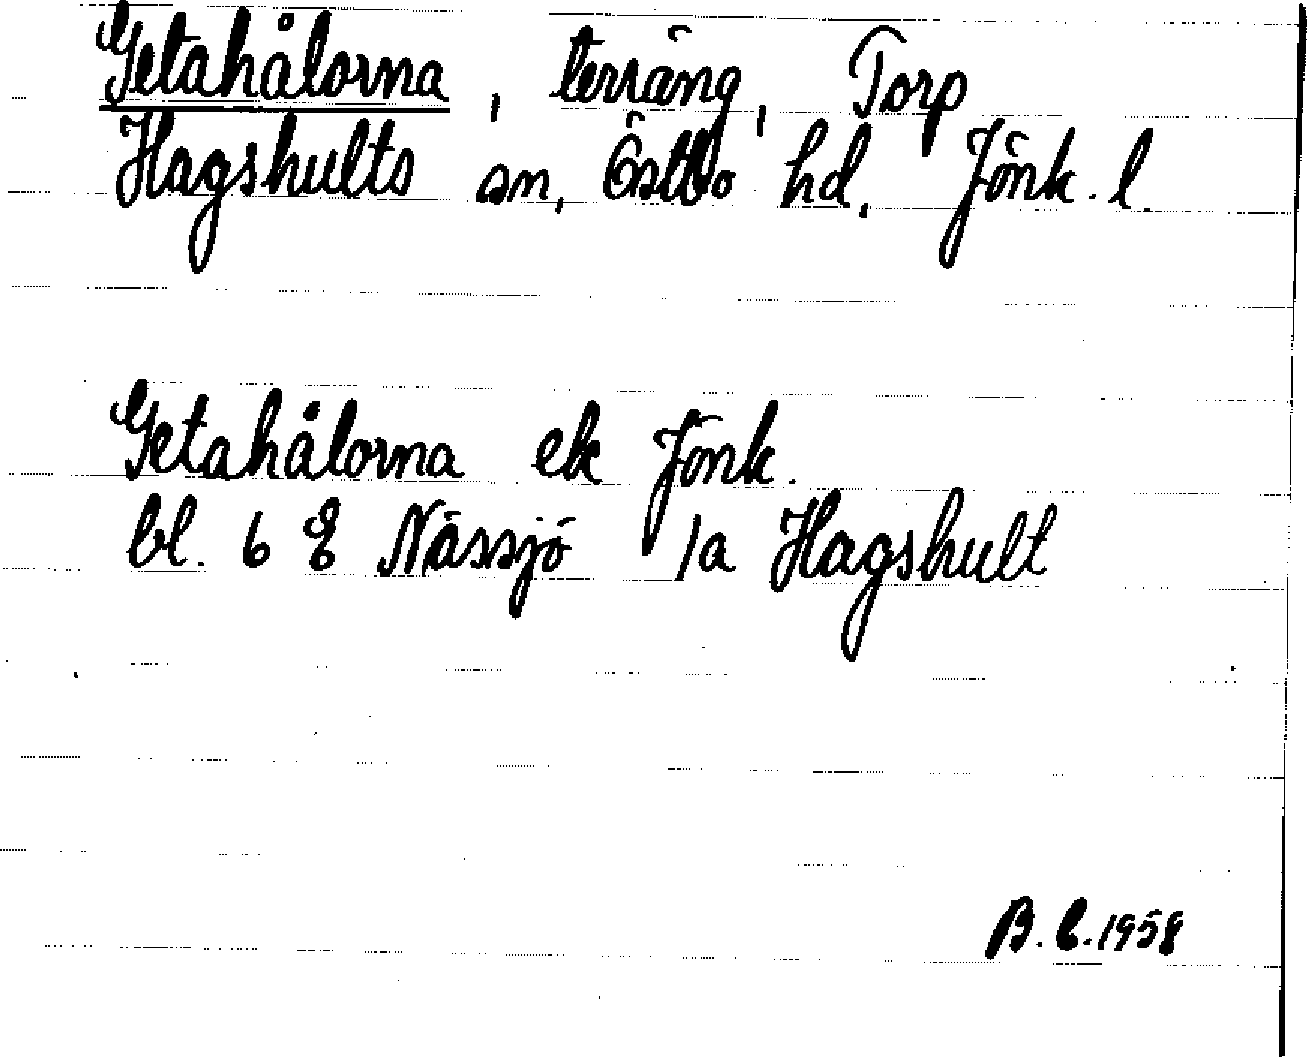 Getahålorna, terräng, Torp
Hagshults sn, Östbo hd, Jönk. l.
Getahålorna ek Jönk.
bl. 6 E Nässjö 1a Hagshult
B. C. 1958